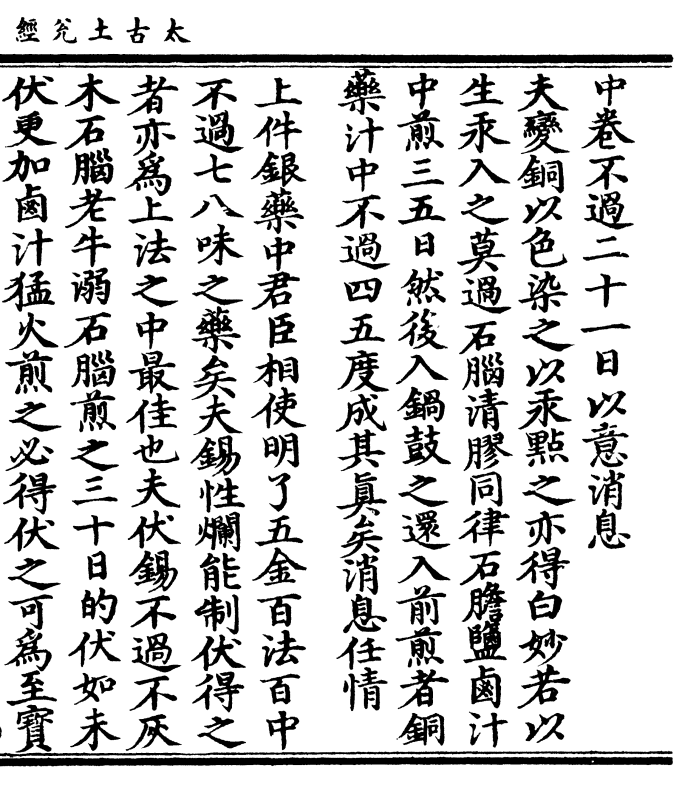 太古土兌經
中卷不過二十一日以意消息
夫變銅以色染之以汞點之亦得白妙若以
生汞入之莫過石腦清膠同律石膽鹽鹵汁
中煎三五日然後入鍋鼓之還入前煎者銅
藥汁中不過四五度成其眞矣消息任情
上件銀藥中君臣相使明了五金百法百中
不過七八味之藥矣夫錫性爛能制伏得之
者亦爲上法之中最佳也夫伏錫不過不灰
木石腦老牛溺石腦煎之三十日的伏如未
伏更加鹵汁猛火煎之必得伏之可爲至寶